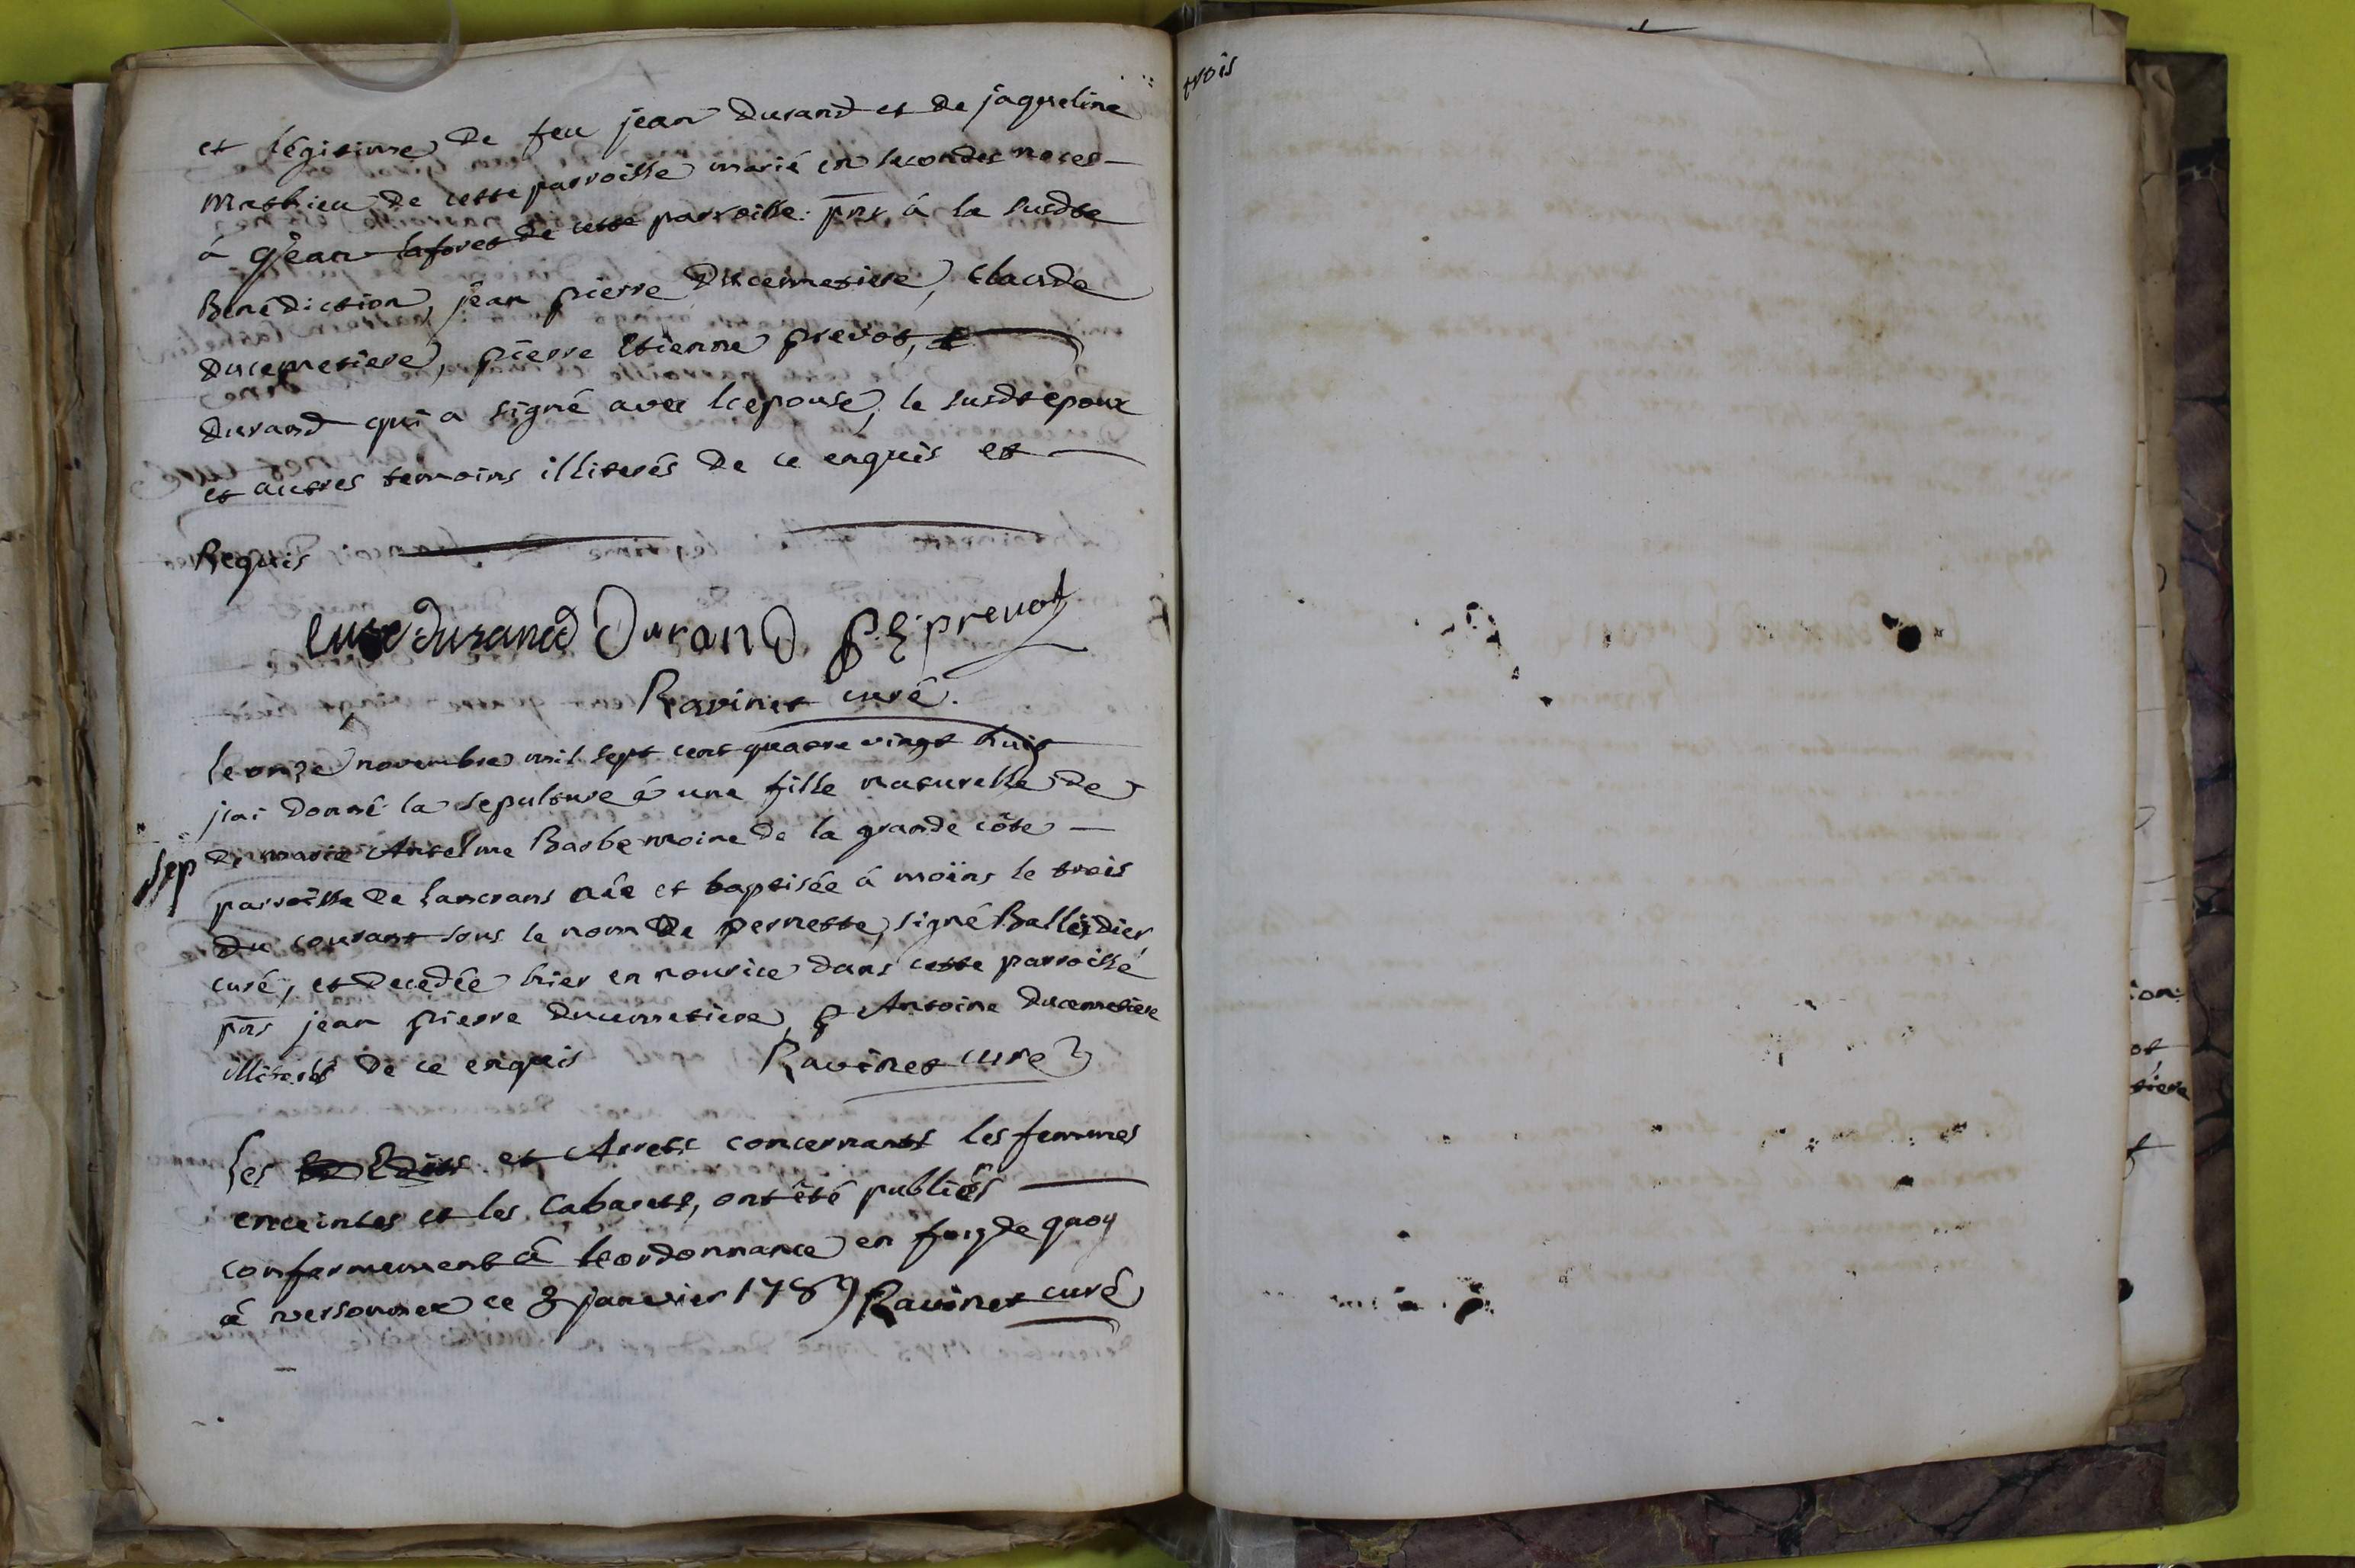 et légitime de feu jean Durand et de jaqueline
Mathieu de cette parroisse marié en secondes noces
à de cette parroisse. pns à la susdte
Bénédiction, jean pierre Ducemetiere, Claude
Ducemetiere, pierre Etienne prevot,
Durand qui a signé avec l'epouse, le susdt epoux
et autres temoins illiterés de ce enquis et
Requis
durand Durand P E prevot
Ravinet curé.
le onze novembre mil sept cent quatre vingt huit
j'ai donné la sepulture à une fille naturelle de
de marie Anselme Barbe moine de la grande côte
sep
parroisse de lancrans née et baptisée à moïns le trois
du courant sous le nom de pernette, signé Balleidier,
curé, et decedée hier en nourice dans cette parroisse
pns jean pierre Ducemetiere, & Antoine Ducemetiere
illiterés de ce enquis Ravinet curé
Les Edits et Arrets concernants les femmes
enceintes et les Cabarets, ont été publiés
conformement à l'ordonnance en foy de quoy
à versonnex ce 3 janvier 1789 Ravinet curé
trois